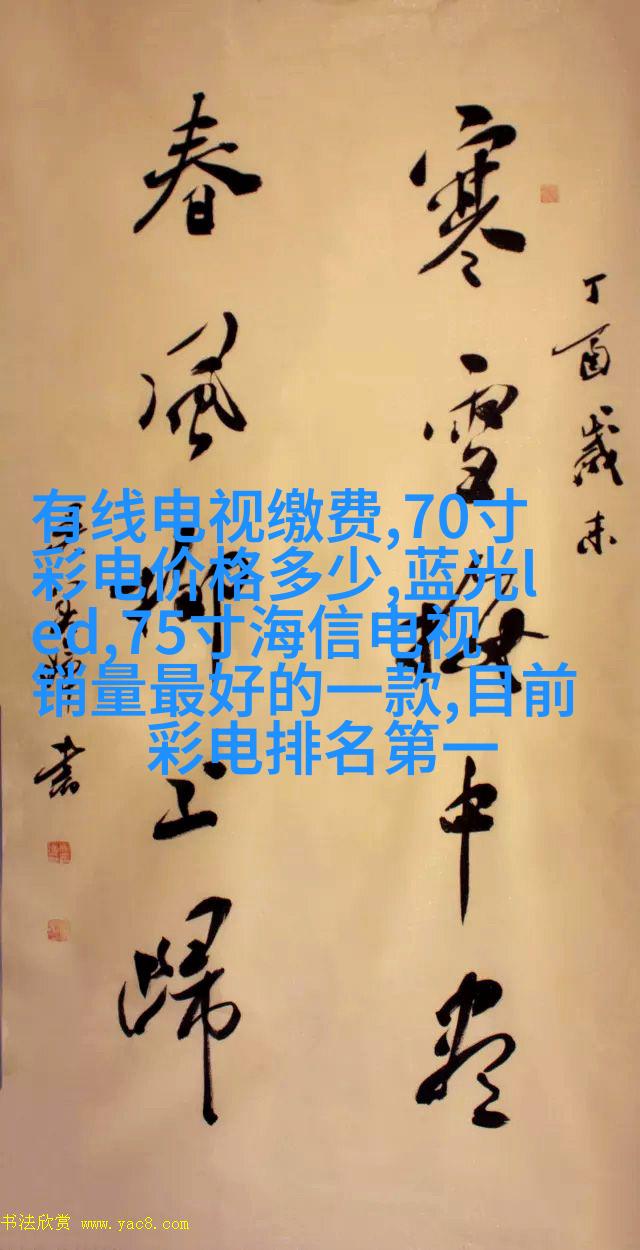 丁酉歲末
寒雪梅中尽
春風柳上歸
書
有线电视缴费,70寸
彩电价格多少,蓝光l
ed,75寸海信电视
销量最好的一款,目前
彩电排名第一
书法欣赏 www.yac8.com